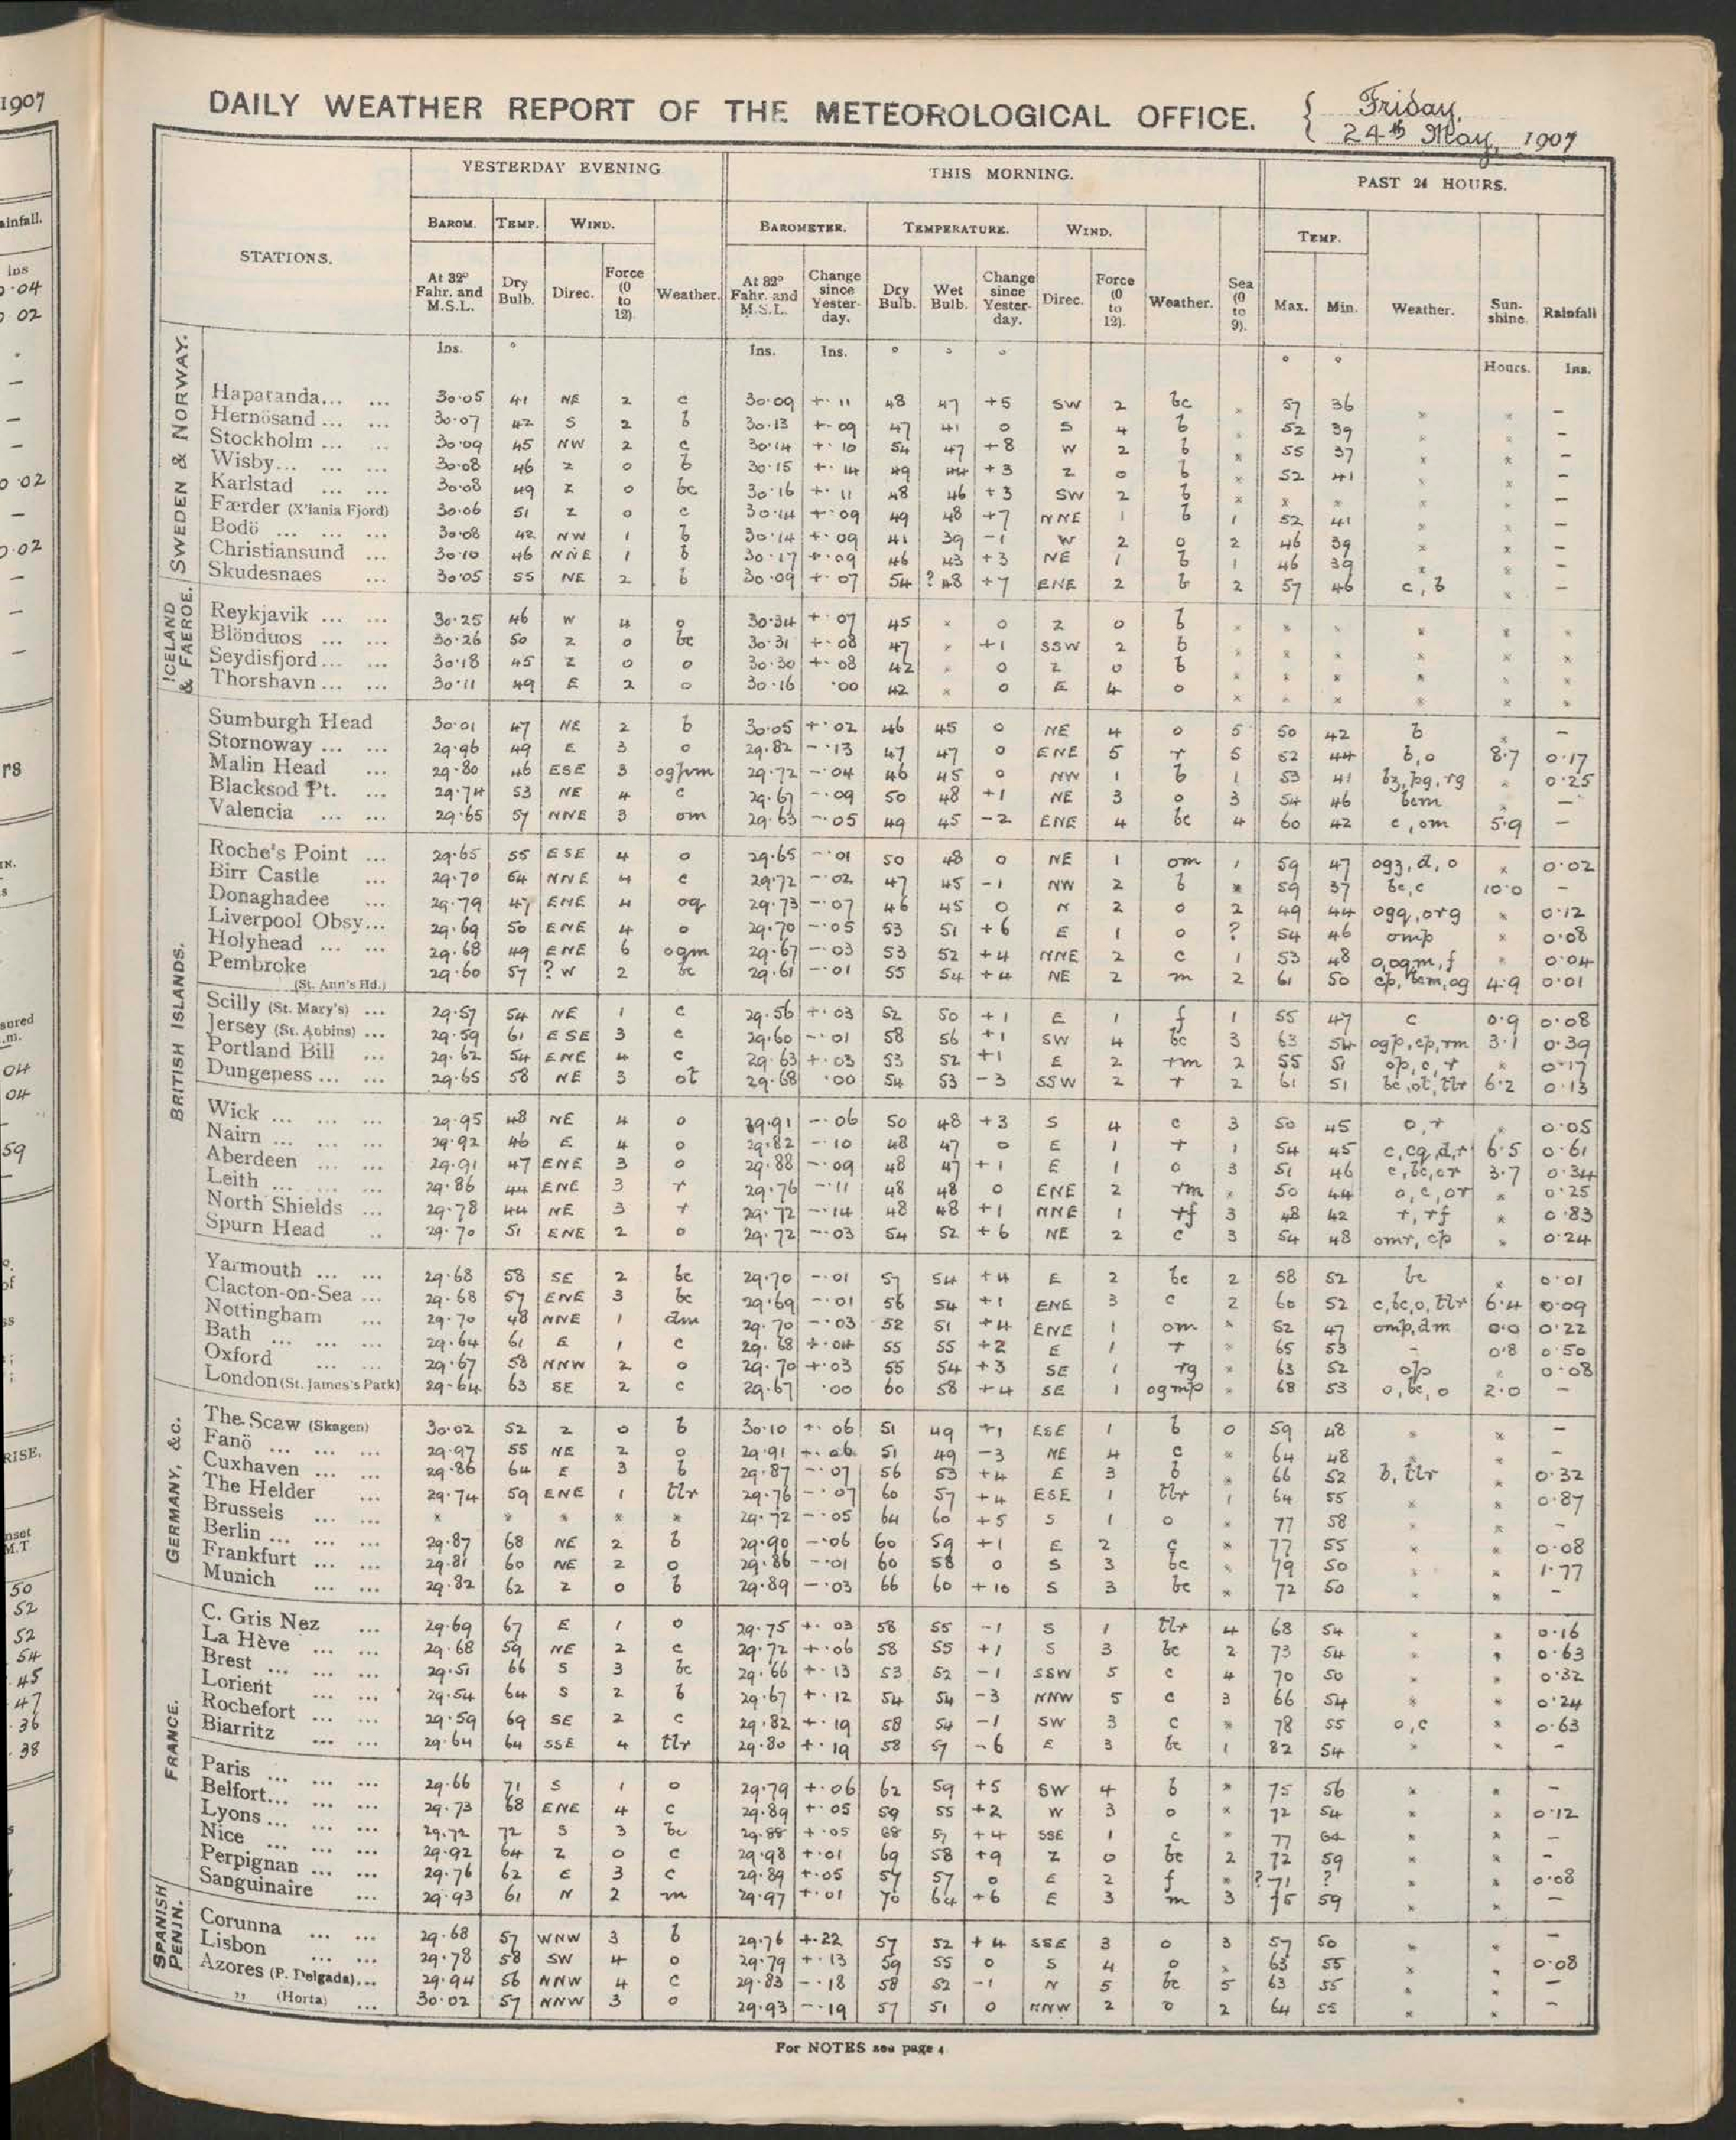 1907
DAILY WEATHER REPORT OF THE METEOROLOGICAL OFFICE. { Friday, 24th May, 1907
STATIONS. YESTERDAY EVENING THIS MORNING. PAST 24 HOURS.
BAROM. TEMP. WIND. Weather. BAROMETER. TEMPERATURE. WIND. Weather. Sea (0 to 9). TEMP. Weather. Sunshine. Rainfall
At 32° Fahr. and M.S.L. Dry Bulb. Direc. Force (0 to 12). At 32° Fahr. and M.S.L. Change since Yesterday. Dry Bulb. Wet Bulb. Change since Yesterday. Direc. Force (0 to 12). Max. Min.
Ins. ° Ins. Ins. ° ° ° ° ° Hours. Ins.
SWEDEN & NORWAY.
Haparanda... ... 30·05 41 NE 2 c 30·09 +·11 48 47 +5 SW 2 bc × 57 36 × × –
Hernösand ... ... 30·07 42 S 2 b 30·13 +·09 47 41 0 S 4 b × 52 39 × × –
Stockholm ... ... 30·09 45 NW 2 c 30·14 +·10 54 47 +8 W 2 b × 55 37 × × –
Wisby... ... ... 30·08 46 Z 0 b 30·15 +·14 49 44 +3 Z 0 b × 52 41 × × –
Karlstad ... ... 30·08 49 Z 0 bc 30·16 +·11 48 46 +3 SW 2 b × × × × × –
Færder (X'iania Fjord) 30·06 51 Z 0 c 30·14 +·09 49 48 +7 NNE 1 b 1 52 41 × × –
Bodö ... ... ... 30·08 42 NW 1 b 30·14 +·09 41 39 -1 W 2 0 2 46 39 × × –
Christiansund ... 30·10 46 NNE 1 b 30·17 +·09 46 43 +3 NE 1 b 1 46 39 × × –
Skudesnaes ... 30·05 55 NE 2 b 30·09 +·07 54 ? 48 +7 ENE 2 b 2 57 46 c, b × –
ICELAND & FAEROE.
Reykjavik ... ... 30·25 46 W 4 o 30·34 +·07 45 × 0 Z 0 b × × × × × ×
Blönduos ... ... 30·26 50 Z 0 bc 30·31 +·08 47 × +1 SSW 2 b × × × × × ×
Seydisfjord... ... 30·18 45 Z 0 o 30·30 +·08 42 × 0 Z 0 b × × × × × ×
Thorshavn ... ... 30·11 49 E 2 o 30·16 ·00 42 × 0 E 4 o × × × × × ×
BRITISH ISLANDS.
Sumburgh Head 30·01 47 NE 2 b 30·05 +·02 46 45 0 NE 4 o 5 50 42 b × –
Stornoway ... ... 29·96 49 E 3 o 29·82 -·13 47 47 0 ENE 5 r 5 52 44 b, o 8·7 0·17
Malin Head ... 29·80 46 ESE 3 ogpm 29·72 -·04 46 45 0 NW 1 b 1 53 41 bz, pg, rg × 0·25
Blacksod Pt. ... 29·74 53 NE 4 c 29·67 -·09 50 48 +1 NE 3 o 3 54 46 bcm × –
Valencia ... ... 29·65 57 NNE 3 om 29·63 -·05 49 45 -2 ENE 4 bc 4 60 42 c, om 5·9 –
Roche's Point ... 29·65 55 ESE 4 o 29·65 -·01 50 48 0 NE 1 om 1 59 47 ogz, d, o × 0·02
Birr Castle ... 29·70 64 NNE 4 c 29·72 -·02 47 45 -1 NW 2 b × 59 37 bc, c 10·0 –
Donaghadee ... 29·79 47 ENE 4 oq 29·73 -·07 46 45 0 N 2 o 2 49 44 ogq, org × 0·12
Liverpool Obsy... 29·69 50 ENE 4 o 29·70 -·05 53 51 +6 E 1 o ? 54 46 omp × 0·08
Holyhead ... ... 29·68 49 ENE 6 oqm 29·67 -·03 53 52 +4 NNE 2 c 1 53 48 o, oqm, f × 0·04
Pembroke (St. Ann's Hd.) 29·60 57 ? W 2 bc 29·61 -·01 55 54 +4 NE 2 m 2 61 50 cp, bcm, og 4·9 0·01
Scilly (St. Mary's) ... 29·57 54 NE 1 c 29·56 +·03 52 50 +1 E 1 f 1 55 47 c 0·9 0·08
Jersey (St. Aubins) ... 29·59 61 ESE 3 c 29·60 -·01 58 56 +1 SW 4 bc 3 63 54 ogp, cp, rm 3·1 0·39
Portland Bill ... 29·62 54 ENE 4 c 29·63 +·03 53 52 +1 E 2 rm 2 55 51 op, o, r × 0·17
Dungeness ... ... 29·65 58 NE 3 ot 29·68 ·00 54 53 -3 SSW 2 r 2 61 51 bc, ot, tlr 6·2 0·13
Wick ... ... ... 29·95 48 NE 4 o 29·91 -·06 50 48 +3 S 4 c 3 50 45 o, r × 0·05
Nairn ... ... ... 29·92 46 E 4 o 29·82 -·10 48 47 0 E 1 r 1 54 45 c, cq, d, r 6·5 0·61
Aberdeen ... ... 29·91 47 ENE 3 o 29·88 -·09 48 47 +1 E 1 o 3 51 46 c, bc, or 3·7 0·34
Leith ... ... ... 29·86 44 ENE 3 r 29·76 -·11 48 48 0 ENE 2 rm × 50 44 o, c, or × 0·25
North Shields ... 29·78 44 NE 3 r 29·72 -·14 48 48 +1 NNE 1 rf 3 48 42 r, rf × 0·83
Spurn Head .. 29·70 51 ENE 2 o 29·72 -·03 54 52 +6 NE 2 c 3 54 48 omr, cp × 0·24
Yarmouth ... ... 29·68 58 SE 2 bc 29·70 -·01 57 54 +4 E 2 bc 2 58 52 bc × 0·01
Clacton-on-Sea ... 29·68 57 ENE 3 bc 29·69 -·01 56 54 +1 ENE 3 c 2 60 52 c, bc, o, tlr 6·4 0·09
Nottingham ... 29·70 48 NNE 1 dm 29·70 -·03 52 51 +4 ENE 1 om × 52 47 omp, dm 0·0 0·22
Bath ... ... ... 29·64 61 E 1 c 29·68 +·04 55 55 +2 E 1 r × 65 53 - 0·8 0·50
Oxford ... ... 29·67 58 NNW 2 o 29·70 +·03 55 54 +3 SE 1 rg × 63 52 op × 0·08
London (St. James's Park) 29·64 63 SE 2 c 29·67 ·00 60 58 +4 SE 1 ogmp × 68 53 o, bc, o 2·0 –
GERMANY, &c.
The Scaw (Skagen) 30·02 52 Z 0 b 30·10 +·06 51 49 +1 ESE 1 b 0 59 48 × × –
Fanö ... ... ... 29·97 55 NE 2 o 29·91 +·06 51 49 -3 NE 4 c × 64 48 × × –
Cuxhaven ... ... 29·86 64 E 3 b 29·87 -·07 56 53 +4 E 3 b × 66 52 b, tlr × 0·32
The Helder ... 29·74 59 ENE 1 tlr 29·76 -·07 60 57 +4 ESE 1 tlr 1 64 55 × × 0·87
Brussels ... ... × × × × × 29·72 -·05 64 60 +5 S 1 o × 77 58 × × –
Berlin ... ... ... 29·87 68 NE 2 b 29·90 -·06 60 59 +1 E 2 c × 77 55 × × 0·08
Frankfurt ... ... 29·81 60 NE 2 o 29·86 -·01 60 58 0 S 3 bc × 79 50 × × 1·77
Munich ... ... 29·82 62 Z 0 b 29·89 -·03 66 60 +10 S 3 bc × 72 50 × × –
FRANCE.
C. Gris Nez ... 29·69 67 E 1 o 29·75 +·03 58 55 -1 S 1 tlr 4 68 54 × × 0·16
La Hève ... ... 29·68 59 NE 2 c 29·72 +·06 58 55 +1 S 3 bc 2 73 54 × × 0·63
Brest ... ... ... 29·51 66 S 3 bc 29·66 +·13 53 52 -1 SSW 5 c 4 70 50 × × 0·32
Lorient ... ... 29·54 64 S 2 b 29·67 +·12 54 54 -3 NNW 5 c 3 66 54 × × 0·24
Rochefort ... ... 29·59 69 SE 2 c 29·82 +·19 58 54 -1 SW 3 c × 78 55 o, c × 0·63
Biarritz ... ... 29·64 64 SSE 4 tlr 29·80 +·19 58 57 -6 E 3 bc 1 82 54 × × –
Paris ... ... ... 29·66 71 S 1 o 29·79 +·06 62 59 +5 SW 4 b × 75 56 × × –
Belfort... ... ... 29·73 68 ENE 4 c 29·89 +·05 59 55 +2 W 3 o × 72 54 × × 0·12
Lyons ... ... ... 29·72 72 S 3 bc 29·88 +·05 68 57 +4 SSE 1 c × 77 64 × × –
Nice ... ... ... 29·92 64 Z 0 c 29·98 +·01 69 58 +9 Z 0 bc 2 72 59 × × –
Perpignan ... ... 29·76 62 E 3 c 29·89 +·05 57 57 0 E 2 f × ? 71 ? × × 0·08
Sanguinaire ... 29·93 61 N 2 m 29·97 +·01 70 64 +6 E 3 m 3 75 59 × × –
SPANISH PENIN.
Corunna ... ... 29·68 57 WNW 3 b 29·76 +·22 57 52 +4 SSE 3 o 3 57 50 × × –
Lisbon ... ... 29·78 58 SW 4 o 29·79 +·13 59 55 0 S 4 o × 63 55 × × 0·08
Azores (P. Delgada)... 29·94 56 NNW 4 c 29·83 -·18 58 52 -1 N 5 bc 5 63 55 × × –
,, (Horta) ... 30·02 57 NNW 3 o 29·93 -·19 57 51 0 NNW 2 o 2 64 55 × × –
For NOTES see page 4